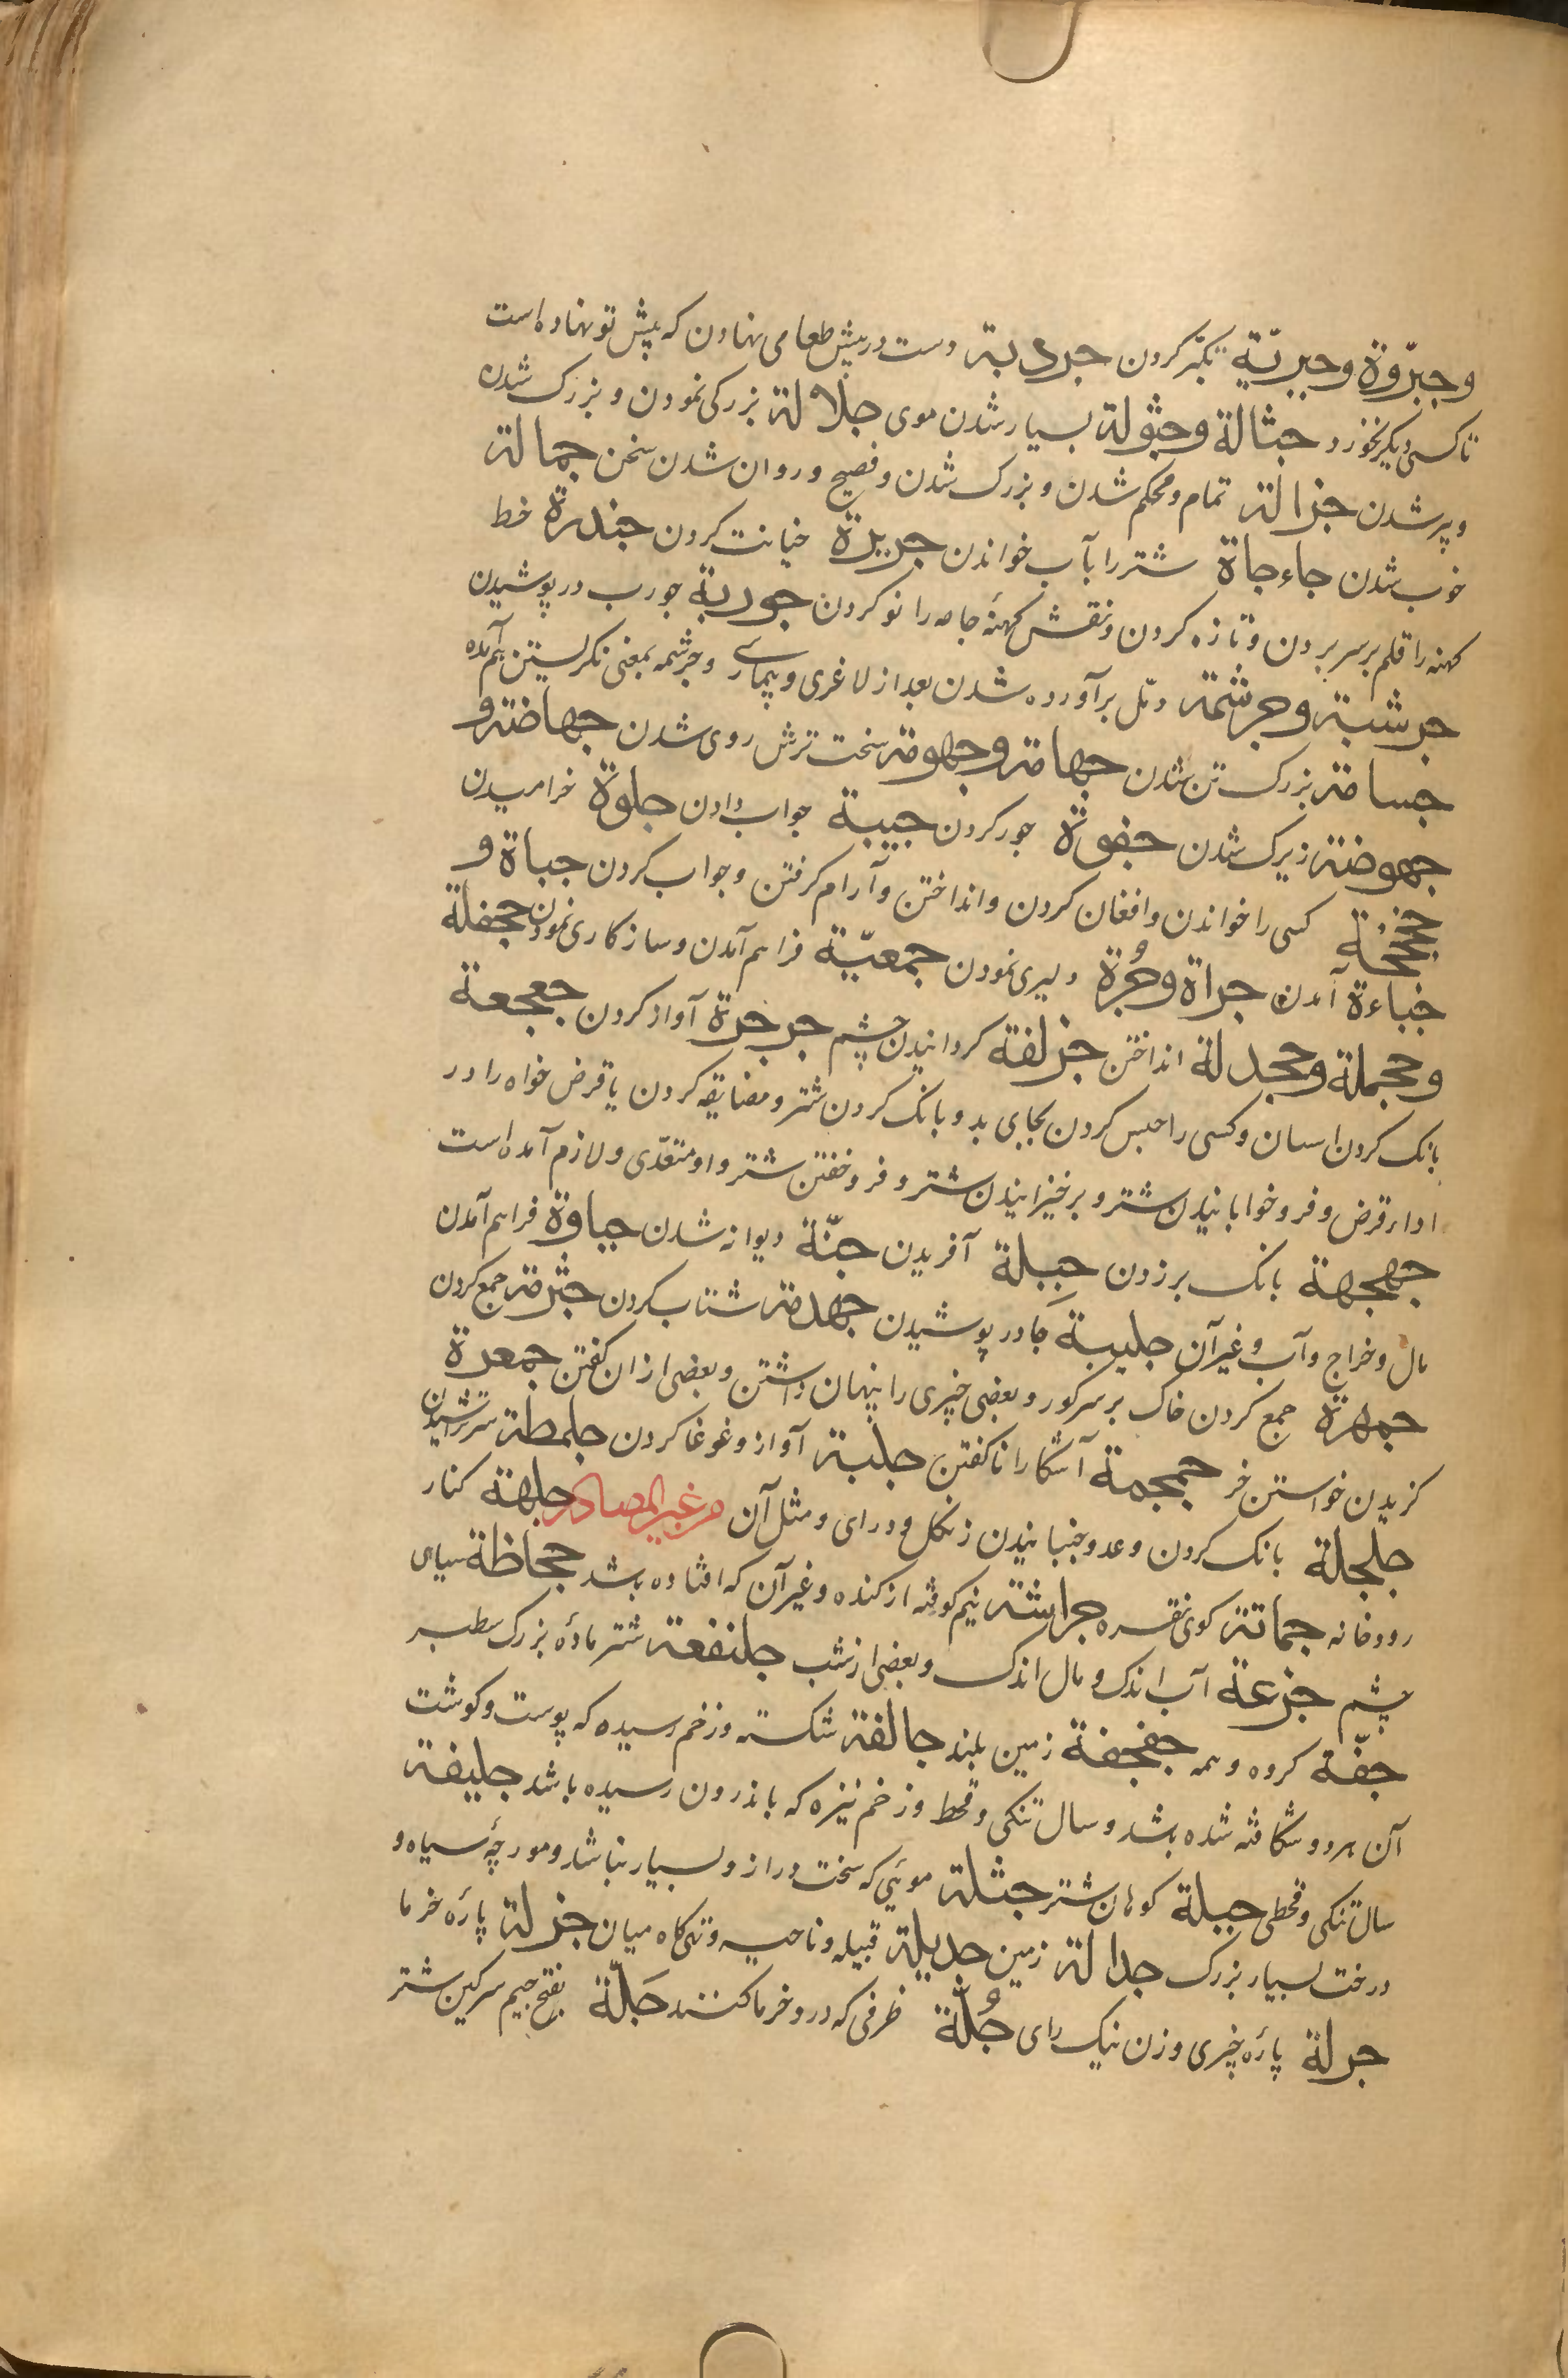 وجبّروة وجبریّة تکبّر کردن جردبة دست در پیش طعامی نهادن که پیش تو نهاده است
تا کسی دیگر نخورد جثالة وجثولة بسیار شدن موی جلالة بزرکی نمودن و بزرک شدن
وپر شدن جزالة تمام و محکم شدن و بزرک شدن و فصیح و روان شدن سخن جمالة
خوب شدن جاءجاة شتر را بآب خواندن جریرة خیانت کردن جندرة خط
کهنه را قلم بر سر بردن و تازه کردن و نقش کهنهٔ جامه را نو کردن جوربة جورب در پوشیدن
جرشبة وجرشمة دمل برآورده شدن بعد از لاغری و بیماری و جرشمه بمعنی نکریستن هم آمده
جسامة بزرک تن شدن جهامة وجهومة سخت ترش روی شدن جهاضة و
جهوضة زیرک شدن جفوة جور کردن جیبة جواب دادن جلوة خرامیدن
کسی را خواندن و افغان کردن و انداختن و آرام کرفتن و جواب کردن جباة و
جباءة آمدن جراة وجُرة دلیری نمودن جمعیّة فراهم آمدن و سازکاری نمودن جحفلة
وجحملة وجحدلة انداختن جزلفة کردانیدن چشم جرجرة آواز کردن جعجعة
بانک کردن اسبان و کسی را حبس کردن بجایی بد و بانک کردن شتر و مضایقه کردن با قرض خواه را در
ادار قرض و فرو خوابانیدن شتر و برخیزانیدن شتر و فروخفتن شتر و او متعدّی و لازم آمده است
جهجهة بانک بر زدن جِبِلة آفریدن جنّة دیوانه شدن جباوة فراهم آمدن
مال و خراج و آب و غیر آن جلببة چادر پوشیدن جهدمة شتاب کردن جثرمة جمع کردن
جمهرة جمع کردن خاک بر سر کور و بعضی خبری را پنهان داشتن و بعضی از ان کفتن جمعرة
کزیدن خواستن خر جمجمة آشکارا ناکفتن جلبة آواز و غوغا کردن جلمطة سر تراشیدن
جلجلة بانک کردن رعد و جنبانیدن زنکل و درای و مثل آن من غیر المصادر جلهة کنار
رودخانه جماتة کوی نقره جراشة نیم کوفته از کنده و غیر آن که افتاده باشد جحاظة سیاهی
چشم جزعة آب اندک و مال اندک و بعضی از شب جلنفعة شتر مادهٔ بزرک سطبر
جفّة کروه و همه جفجفة زمین بلند جالفة شکسته و زخم رسیده که پوست و کوشت
آن هر دو شکافته شده باشد و سال تنکی و قحط و زخم نیزه که باندرون رسیده باشد جلیفة
سال تنکی و قحطی جبلة کوهان شتر جثلة موئی که سخت دراز و بسیار نباشد و مورچهٔ سیاه و
درخت بسیار بزرک جدالة زمین جدیلة قبیله و ناحیه و تهی کاه میان جزلة پارهٔ خرما
جرلة پارهٔ چیزی و زن نیک رای جُلّة ظرفی که درو خرما کنند جَلّة بفتح جیم سرکین شتر